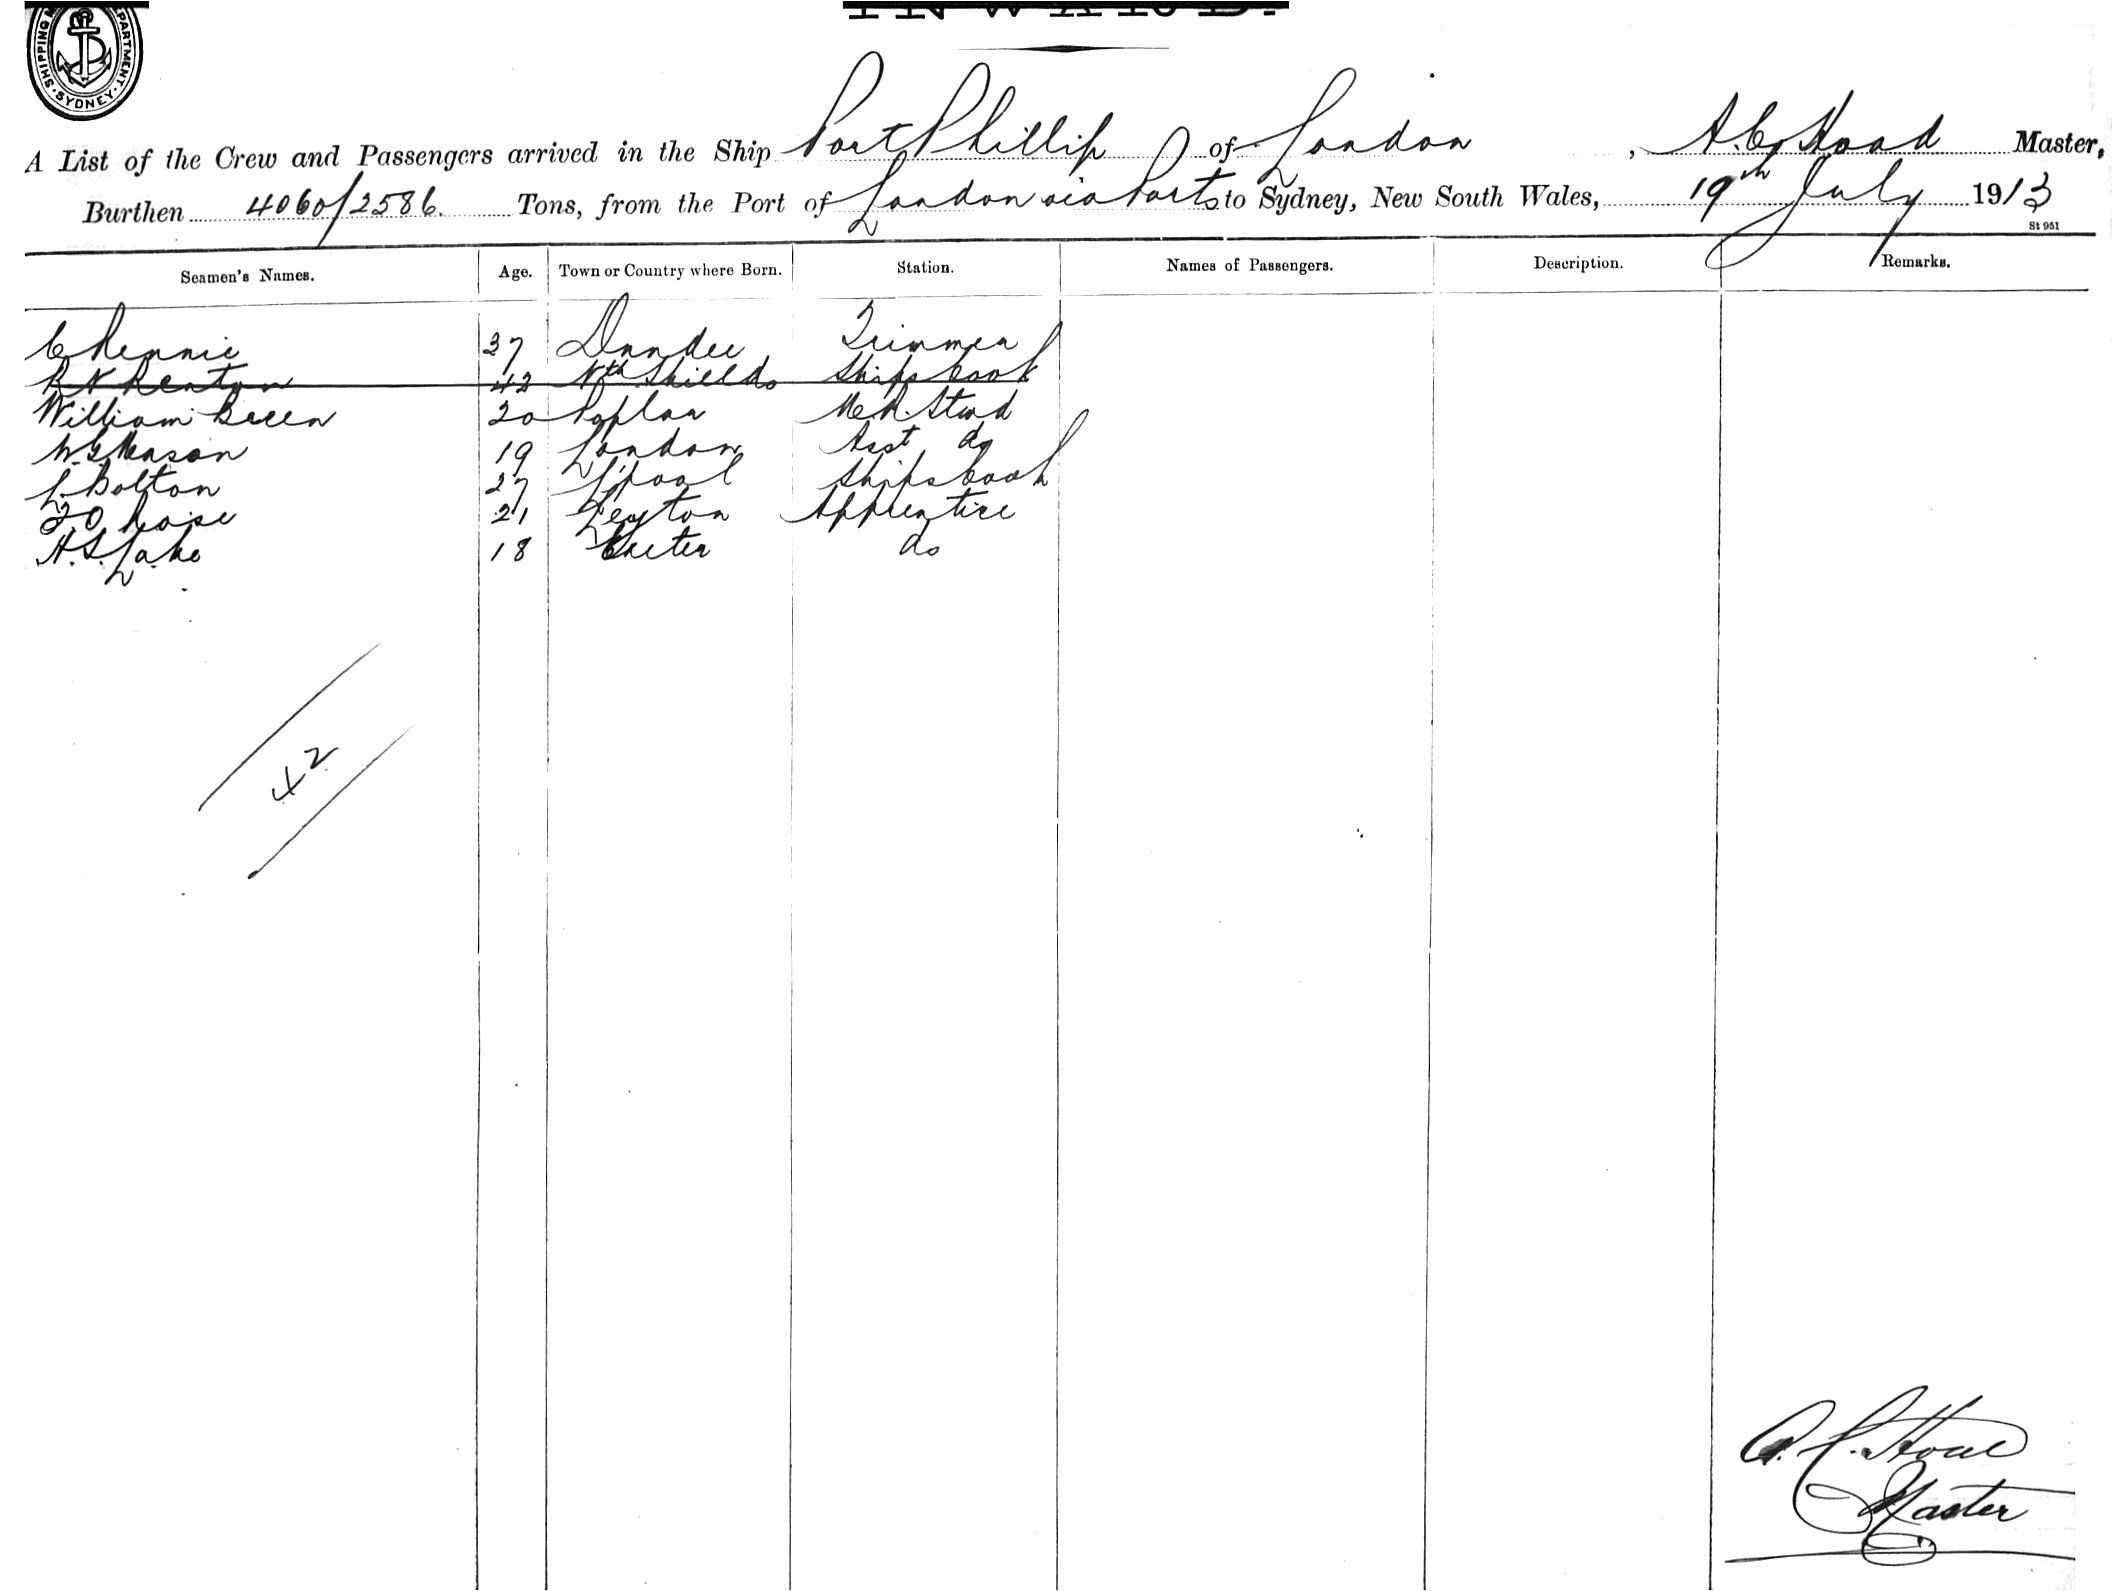 SHIPPING DEPARTMENT. SYDNEY.
INWARD.
A List of the Crew and Passengers arrived in the Ship Port Phillip of London, A. C. Hoad Master,
Burthen 4060/2586. Tons, from the Port of London via Ports to Sydney, New South Wales, 19th July 1913
St 951
Seamen's Names. Age. Town or Country where Born. Station. Names of Passengers. Description. Remarks.
C Rennie 37 Dundee Trimmer
R N Renton 42 Nth Shields Ships Cook
William Green 20 Poplar M.R. Stwd
W. G. Mason 19 London Asst do
L. Bolton 27 L'pool Ships Cook
Rose 21 Leyton Apprentice
H. S. Lake 18 Exeter do
42
A. C. Hoad
Master